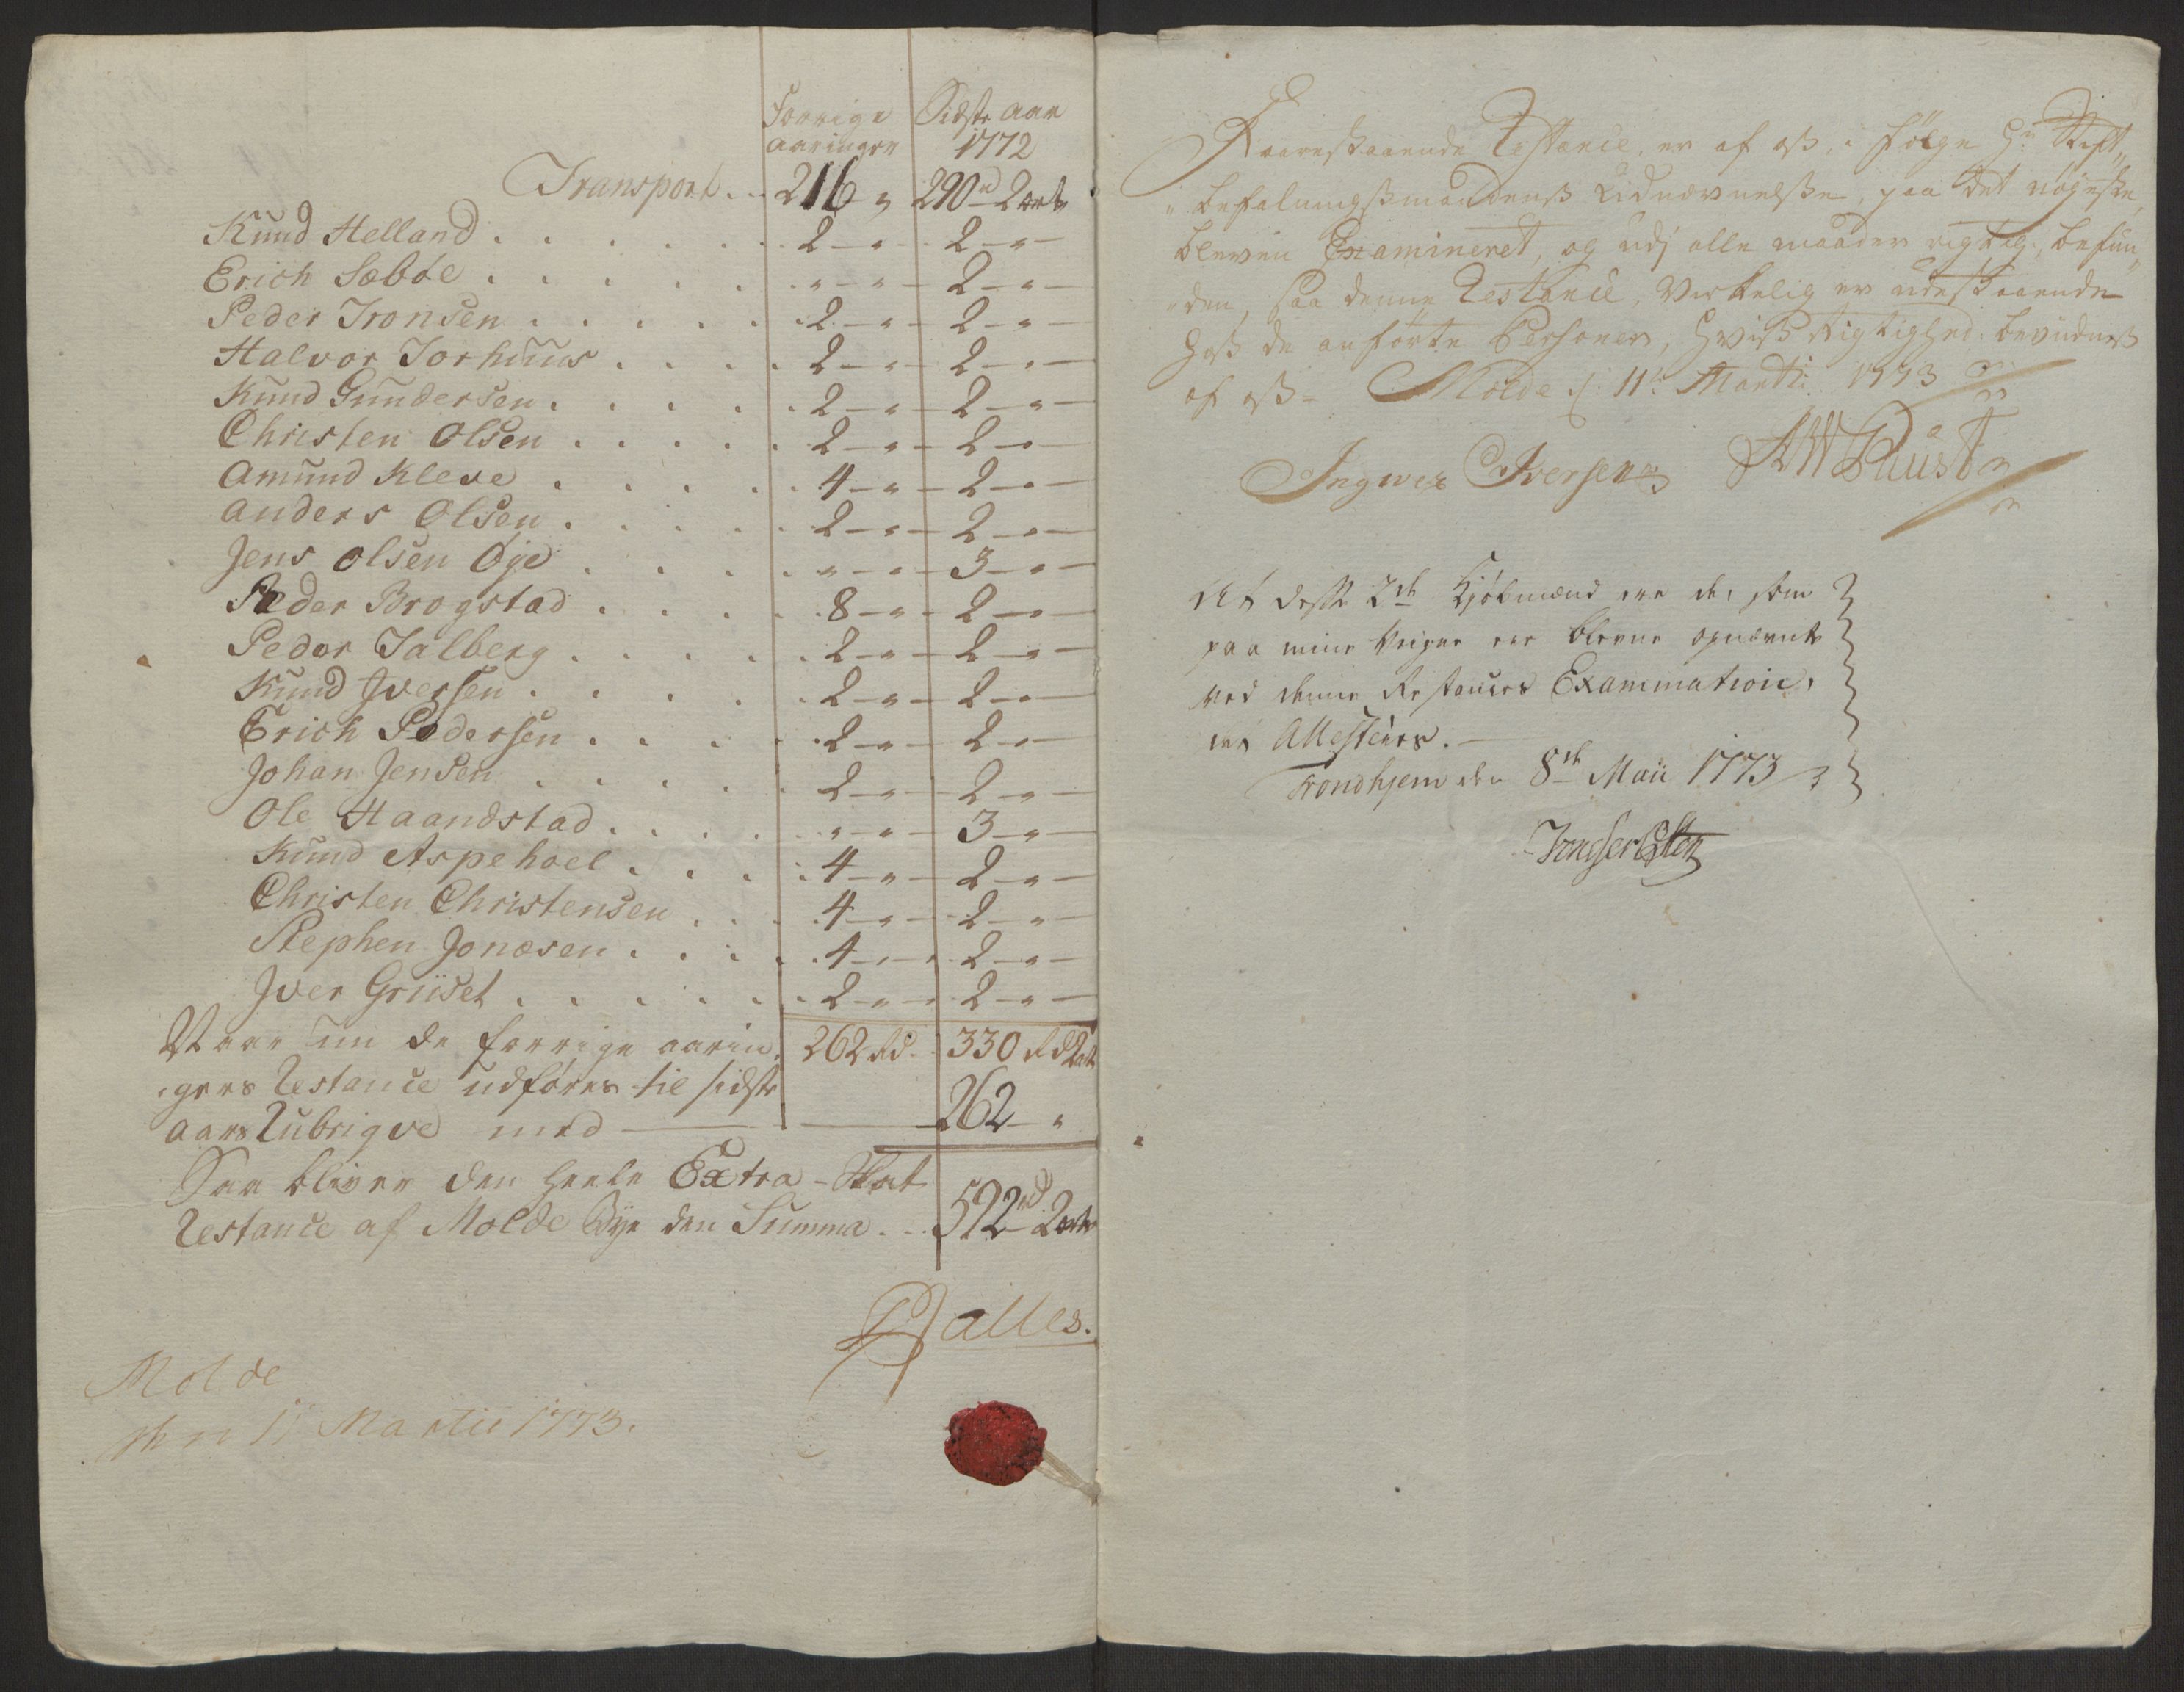 Forrige Sidste Aar
aaringer 1772
Transport . . 216 „ 290 rd 2 ort
Knud Helland . . . . . . 2 — „ — 2 — „ —
Erich Sæbøe . . . . . „ — „ — 2 — „ —
Peder Tronsen . . . . . 2 — „ — 2 — „ —
Halvor Torhuus . . . . 2 — „ — 2 — „ —
Knud Gundersen . . . . . 2 — „ — 2 — „ —
Christen Olsen . . . . . 2 — „ — 2 — „ —
Amund Kleve . . . . . 4 — „ — 2 — „ —
Anders Olsen . . . . . 2 — „ — 2 — „ —
Jens Olsen Øye . . . . . „ — „ — 3 — „ —
Peder Brogstad . . . . 8 — „ — 2 — „ —
Peder Talberg . . . . . 2 — „ — 2 — „ —
Knud Iversen . . . . . 2 — „ — 2 — „ —
Erich Pedersen . . . . 2 — „ — 2 — „ —
Johan Jensen . . . . . 2 — „ — 2 — „ —
Ole Haandstad . . . . „ — „ — 3 — „ —
Knud Aspehoel . . . . 4 — „ — 2 — „ —
Christen Christensen . . . 4 — „ — 2 — „ —
Stephen Jonæsen . . . . 4 — „ — 2 — „ —
Iver Grüset . . . . . 2 — „ — 2 — „ —
Naar nu de forrige aarin„ 262 Rd. 330 Rd 2 ort
„gers Restance udføres til sidste
Aars Rubrique med — 262 — „
Saa bliver den heele Extra-Skat
Restance af Molde Bye den Summa . . 592 rd 2 ort
Dalles.
Molde
den 11 Martii 1773.
Foranstaaende Restance, er af oss, i følge Hr. Stift„
„befalningssmandenss Udnævnelsse, paa det nøyeste,
bleven Examineret, og udj alle maader rigtig, befun„
„den, saa denne Restance, Virkelig er udestaaende
hoss de anførte Personer, hviss Rigtighed bevidness
af oss — Molde d. 11te Martii 1773
Ingwer Iversen AWDaust
At disse 2de Kiøbmænd ere de, som
paa mine Veigne ere blevne opnævnte
ved denne Restances Examination,
att Attesteres. —
Trondhjem den 8de Maii 1773